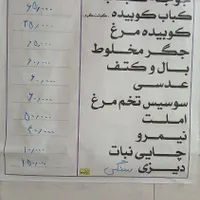 کباب کوبیده ۶۵,۰۰۰
کوبیده مرغ ۲۵,۰۰۰
جگر مخلوط ۶۵,۰۰۰
بال و کتف ۶۰,۰۰۰
عدسی ۶,۰۰۰
سوسیس تخم مرغ
املت ۵۰,۰۰۰
نیمرو ۴۰,۰۰۰
چایی نبات ۱۰,۰۰۰
دیزی سنگی ۱۵۰,۰۰۰